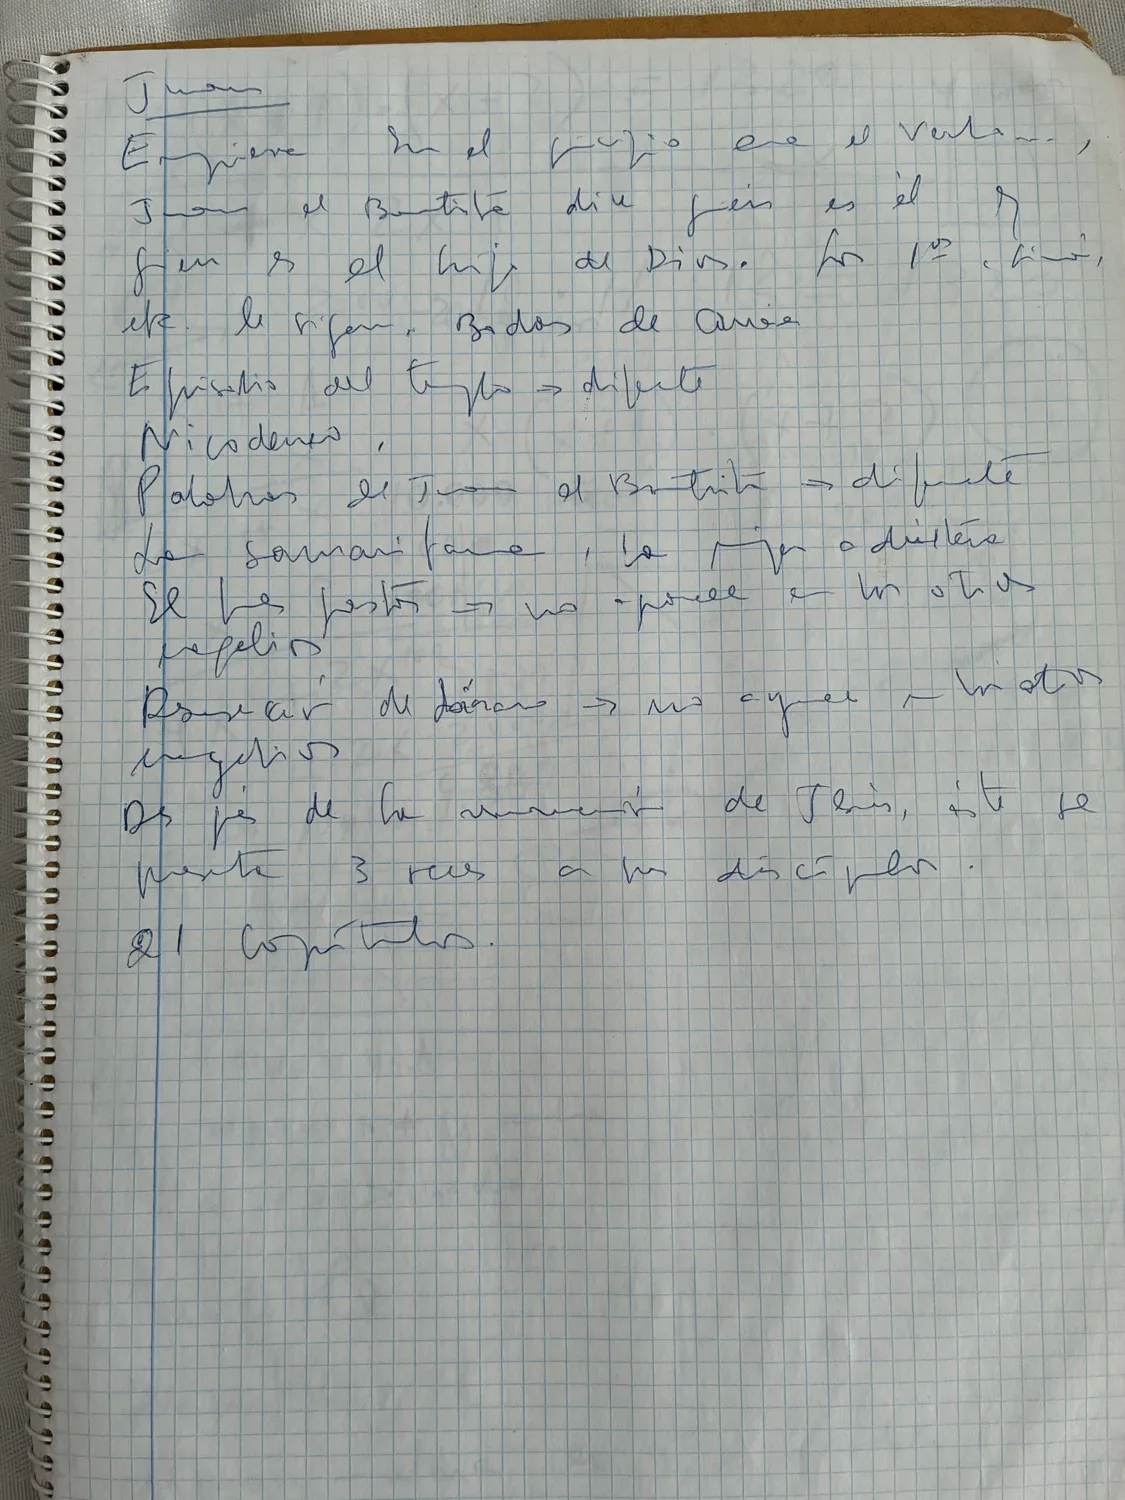 Juan
Empieza En el principio era el Verbo...,
Juan el Bautista dice quién es él y
quien es el hijo de Dios. Los 1os
etc. le siguen. Bodas de Caná
Episodio del templo → diferente
Nicodemo.
Palabras de Juan el Bautista → diferente
La samaritana, la mujer adúltera
El buen pastor → no aparece en los otros
evangelios
Resurrección de Lázaro → no aparece en los otros
evangelios
Después de la resurrección de Jesús, éste se
presenta 3 veces a sus discípulos.
21 Capítulos.